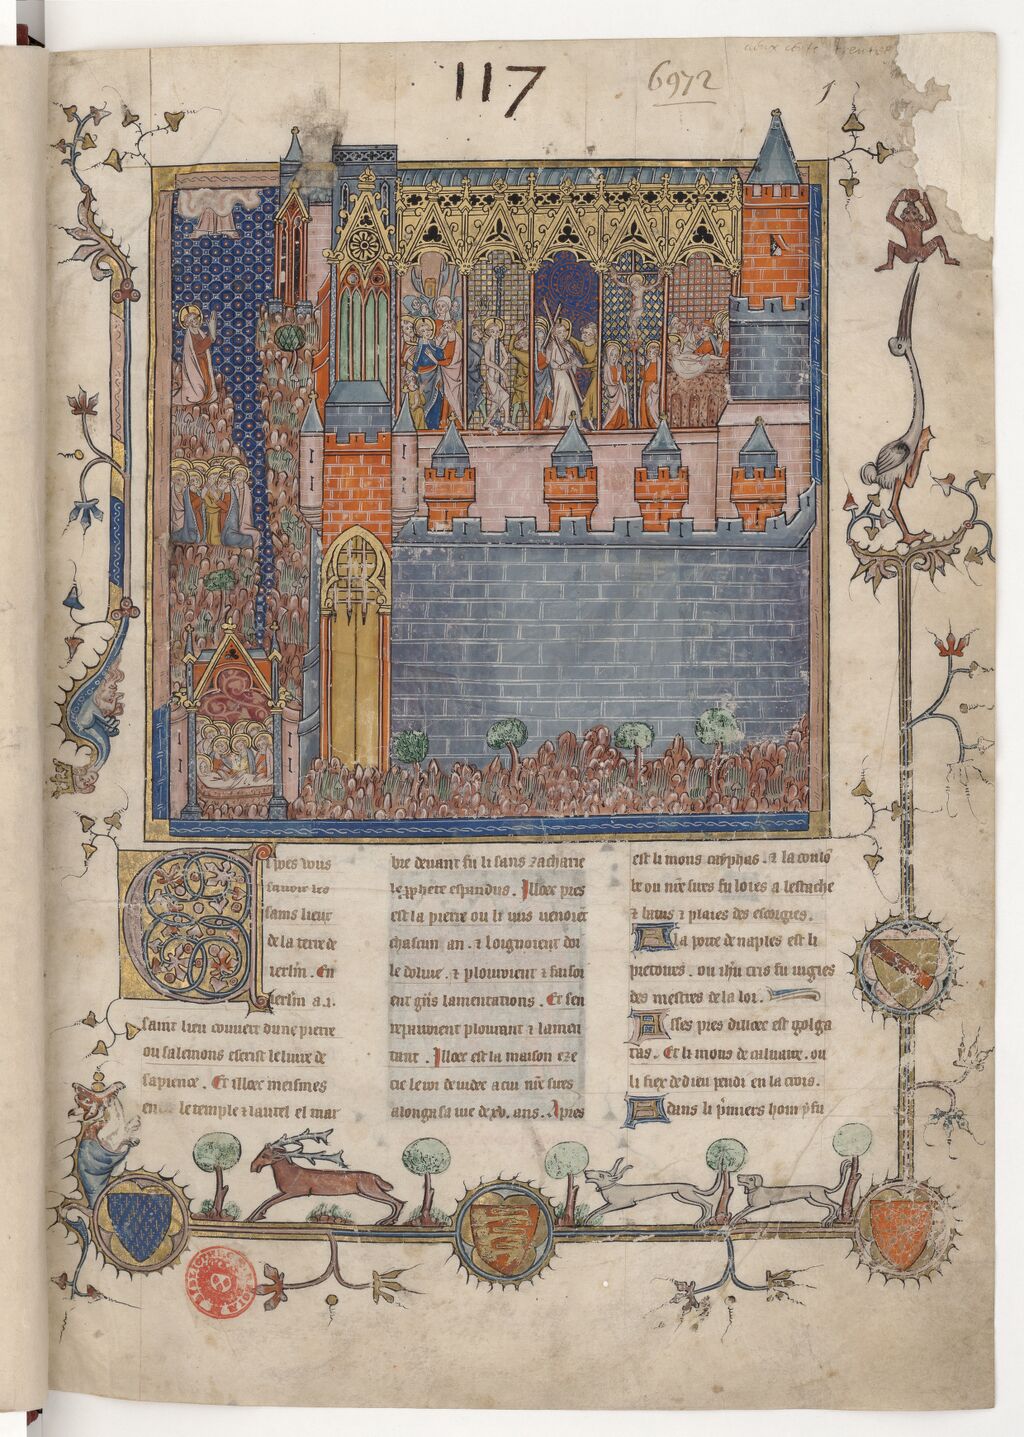 117
6972
1
i poes vous
savoir les
sains lieus
de la terre de
ierlm. En
ierlm a .i.
saint lieu couvert dune pierre
ou salemons escrist le livre de
sapience. Et illoec meismes
le temple & lautel el mar
bre devant fu li sans zacharie
espandus. Illoec pres
est la pierre ou li uis venoient
chascun an. & loignoient doi
le dolive. & plouroient & faisoi
ent gns lamentations. Et sen
plourant & lamen
tant. Illoec est la maison eze
cie le roi de a cui nre sires
alonga sa vie de .xv. ans. Apres
est li mons cayphas. & la coulo
be ou nre sires fu loies a lestache
& batus & plaies des escorgies.
A la porte de naples est li
pretoires. ou ihu cris fu iugies
des mestres de la loi.
Asses pres dilloec est golga
tas. Et li mons de calvaire. ou
li fiex de dieu pendi en la crois.
Adans li pmiers hom y fu